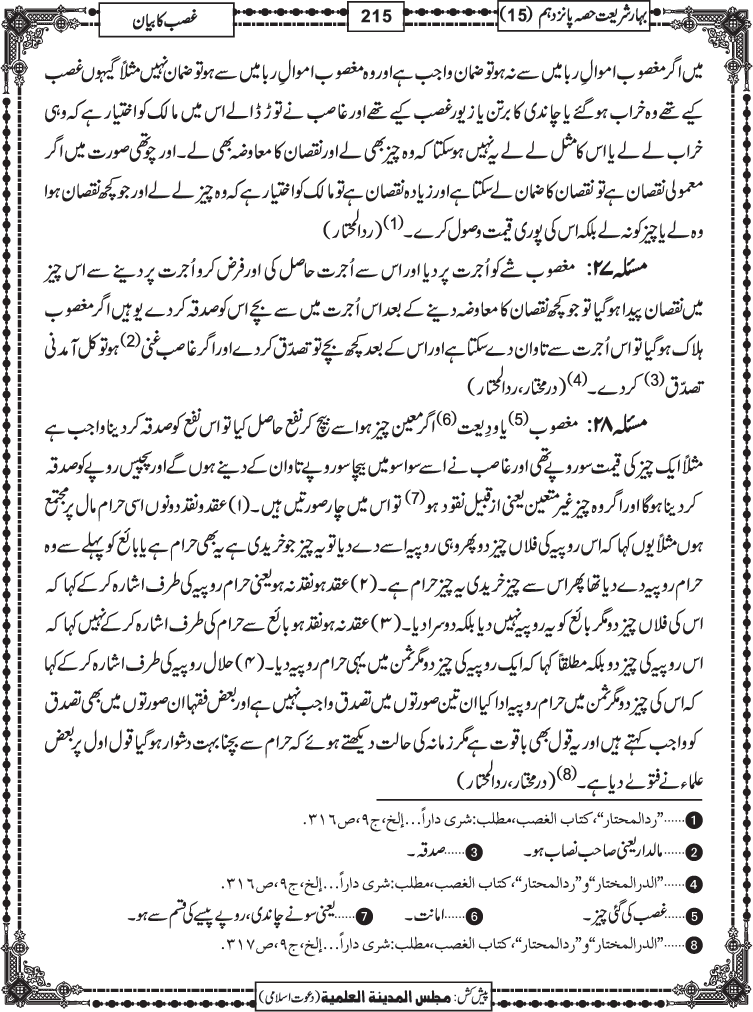 بہارِ شریعت حصہ پانزدہم (15)
215
غصب کا بیان
میں اگر مغصوب اموالِ ربا میں سے نہ ہو تو ضمان واجب ہے اور وہ مغصوب اموالِ ربا میں سے ہو تو ضمان نہیں مثلاً گیہوں غصب
کیے تھے وہ خراب ہو گئے یا چاندی کا برتن یا زیور غصب کیے تھے اور غاصب نے توڑ ڈالے اس میں مالک کو اختیار ہے کہ وہی
خراب لے لے یا اس کا مثل لے لے یہ نہیں ہو سکتا کہ وہ چیز بھی لے اور نقصان کا معاوضہ بھی لے۔ اور چوتھی صورت میں اگر
معمولی نقصان ہے تو نقصان کا ضمان لے سکتا ہے اور زیادہ نقصان ہے تو مالک کو اختیار ہے کہ وہ چیز لے لے اور جو کچھ نقصان ہوا
وہ لے یا چیز کو نہ لے بلکہ اس کی پوری قیمت وصول کرے۔(1) (ردالمحتار)
مسئلہ ۲۷: مغصوب شے کو اُجرت پر دیا اور اس سے اُجرت حاصل کی اور فرض کرو اُجرت پر دینے سے اس چیز
میں نقصان پیدا ہو گیا تو جو کچھ نقصان کا معاوضہ دینے کے بعد اس اُجرت میں سے بچے اس کو صدقہ کر دے یوہیں اگر مغصوب
ہلاک ہو گیا تو اس اُجرت سے تاوان دے سکتا ہے اور اس کے بعد کچھ بچے تو تصدّق کر دے اور اگر غاصب غنی(2) ہو تو کل آمدنی
تصدّق(3) کر دے۔(4) (درمختار، ردالمحتار)
مسئلہ ۲۸: مغصوب(5) یا ودِیعت(6) اگر معین چیز ہو اسے بیچ کر نفع حاصل کیا تو اس نفع کو صدقہ کر دینا واجب ہے
مثلاً ایک چیز کی قیمت سو روپے تھی اور غاصب نے اسے سوا سو میں بیچا سو روپے تاوان کے دینے ہوں گے اور پچیس روپے کو صدقہ
کر دینا ہوگا اور اگر وہ چیز غیر متعین یعنی از قبیل نقود ہو(7) تو اس میں چار صورتیں ہیں۔ (۱) عقد و نقد دونوں اسی حرام مال پر مجتمع
ہوں مثلاً یوں کہا کہ اس روپیہ کی فلاں چیز دو پھر وہی روپیہ اسے دے دیا تو یہ چیز جو خریدی ہے یہ بھی حرام ہے یا بائع کو پہلے سے وہ
حرام روپیہ دے دیا تھا پھر اس سے چیز خریدی یہ چیز حرام ہے۔ (۲) عقد ہو نقد نہ ہو یعنی حرام روپیہ کی طرف اشارہ کر کے کہا کہ
اس کی فلاں چیز دو مگر بائع کو یہ روپیہ نہیں دیا بلکہ دوسرا دیا۔ (۳) عقد نہ ہو نقد ہو بائع سے حرام کی طرف اشارہ کر کے نہیں کہا کہ
اس روپیہ کی چیز دو بلکہ مطلقاً کہا کہ ایک روپیہ کی چیز دو مگر ثمن میں یہی حرام روپیہ دیا۔ (۴) حلال روپیہ کی طرف اشارہ کر کے کہا
کہ اس کی چیز دو مگر ثمن میں حرام روپیہ ادا کیا ان تین صورتوں میں تصدق واجب نہیں ہے اور بعض فقہا ان صورتوں میں بھی تصدق
کو واجب کہتے ہیں اور یہ قول بھی با قوت ہے مگر زمانہ کی حالت دیکھتے ہوئے کہ حرام سے بچنا بہت دشوار ہو گیا قول اول پر بعض
علماء نے فتوےٰ دیا ہے۔(8) (درمختار، ردالمحتار)
1......"ردالمحتار"، كتاب الغصب، مطلب: شرى داراً... إلخ، ج٩، ص٣١٦.
2......مالدار یعنی صاحب نصاب ہو۔ 3......صدقہ۔
4......"الدرالمختار" و"ردالمحتار"، كتاب الغصب، مطلب: شرى داراً... إلخ، ج٩، ص٣١٦.
5......غصب کی گئی چیز۔ 6......امانت۔ 7......یعنی سونے چاندی، روپے پیسے کی قسم سے ہو۔
8......"الدرالمختار" و"ردالمحتار"، كتاب الغصب، مطلب: شرى داراً... إلخ، ج٩، ص٣١٧.
پیش کش: مجلس المدینة العلمیة (دعوت اسلامی)